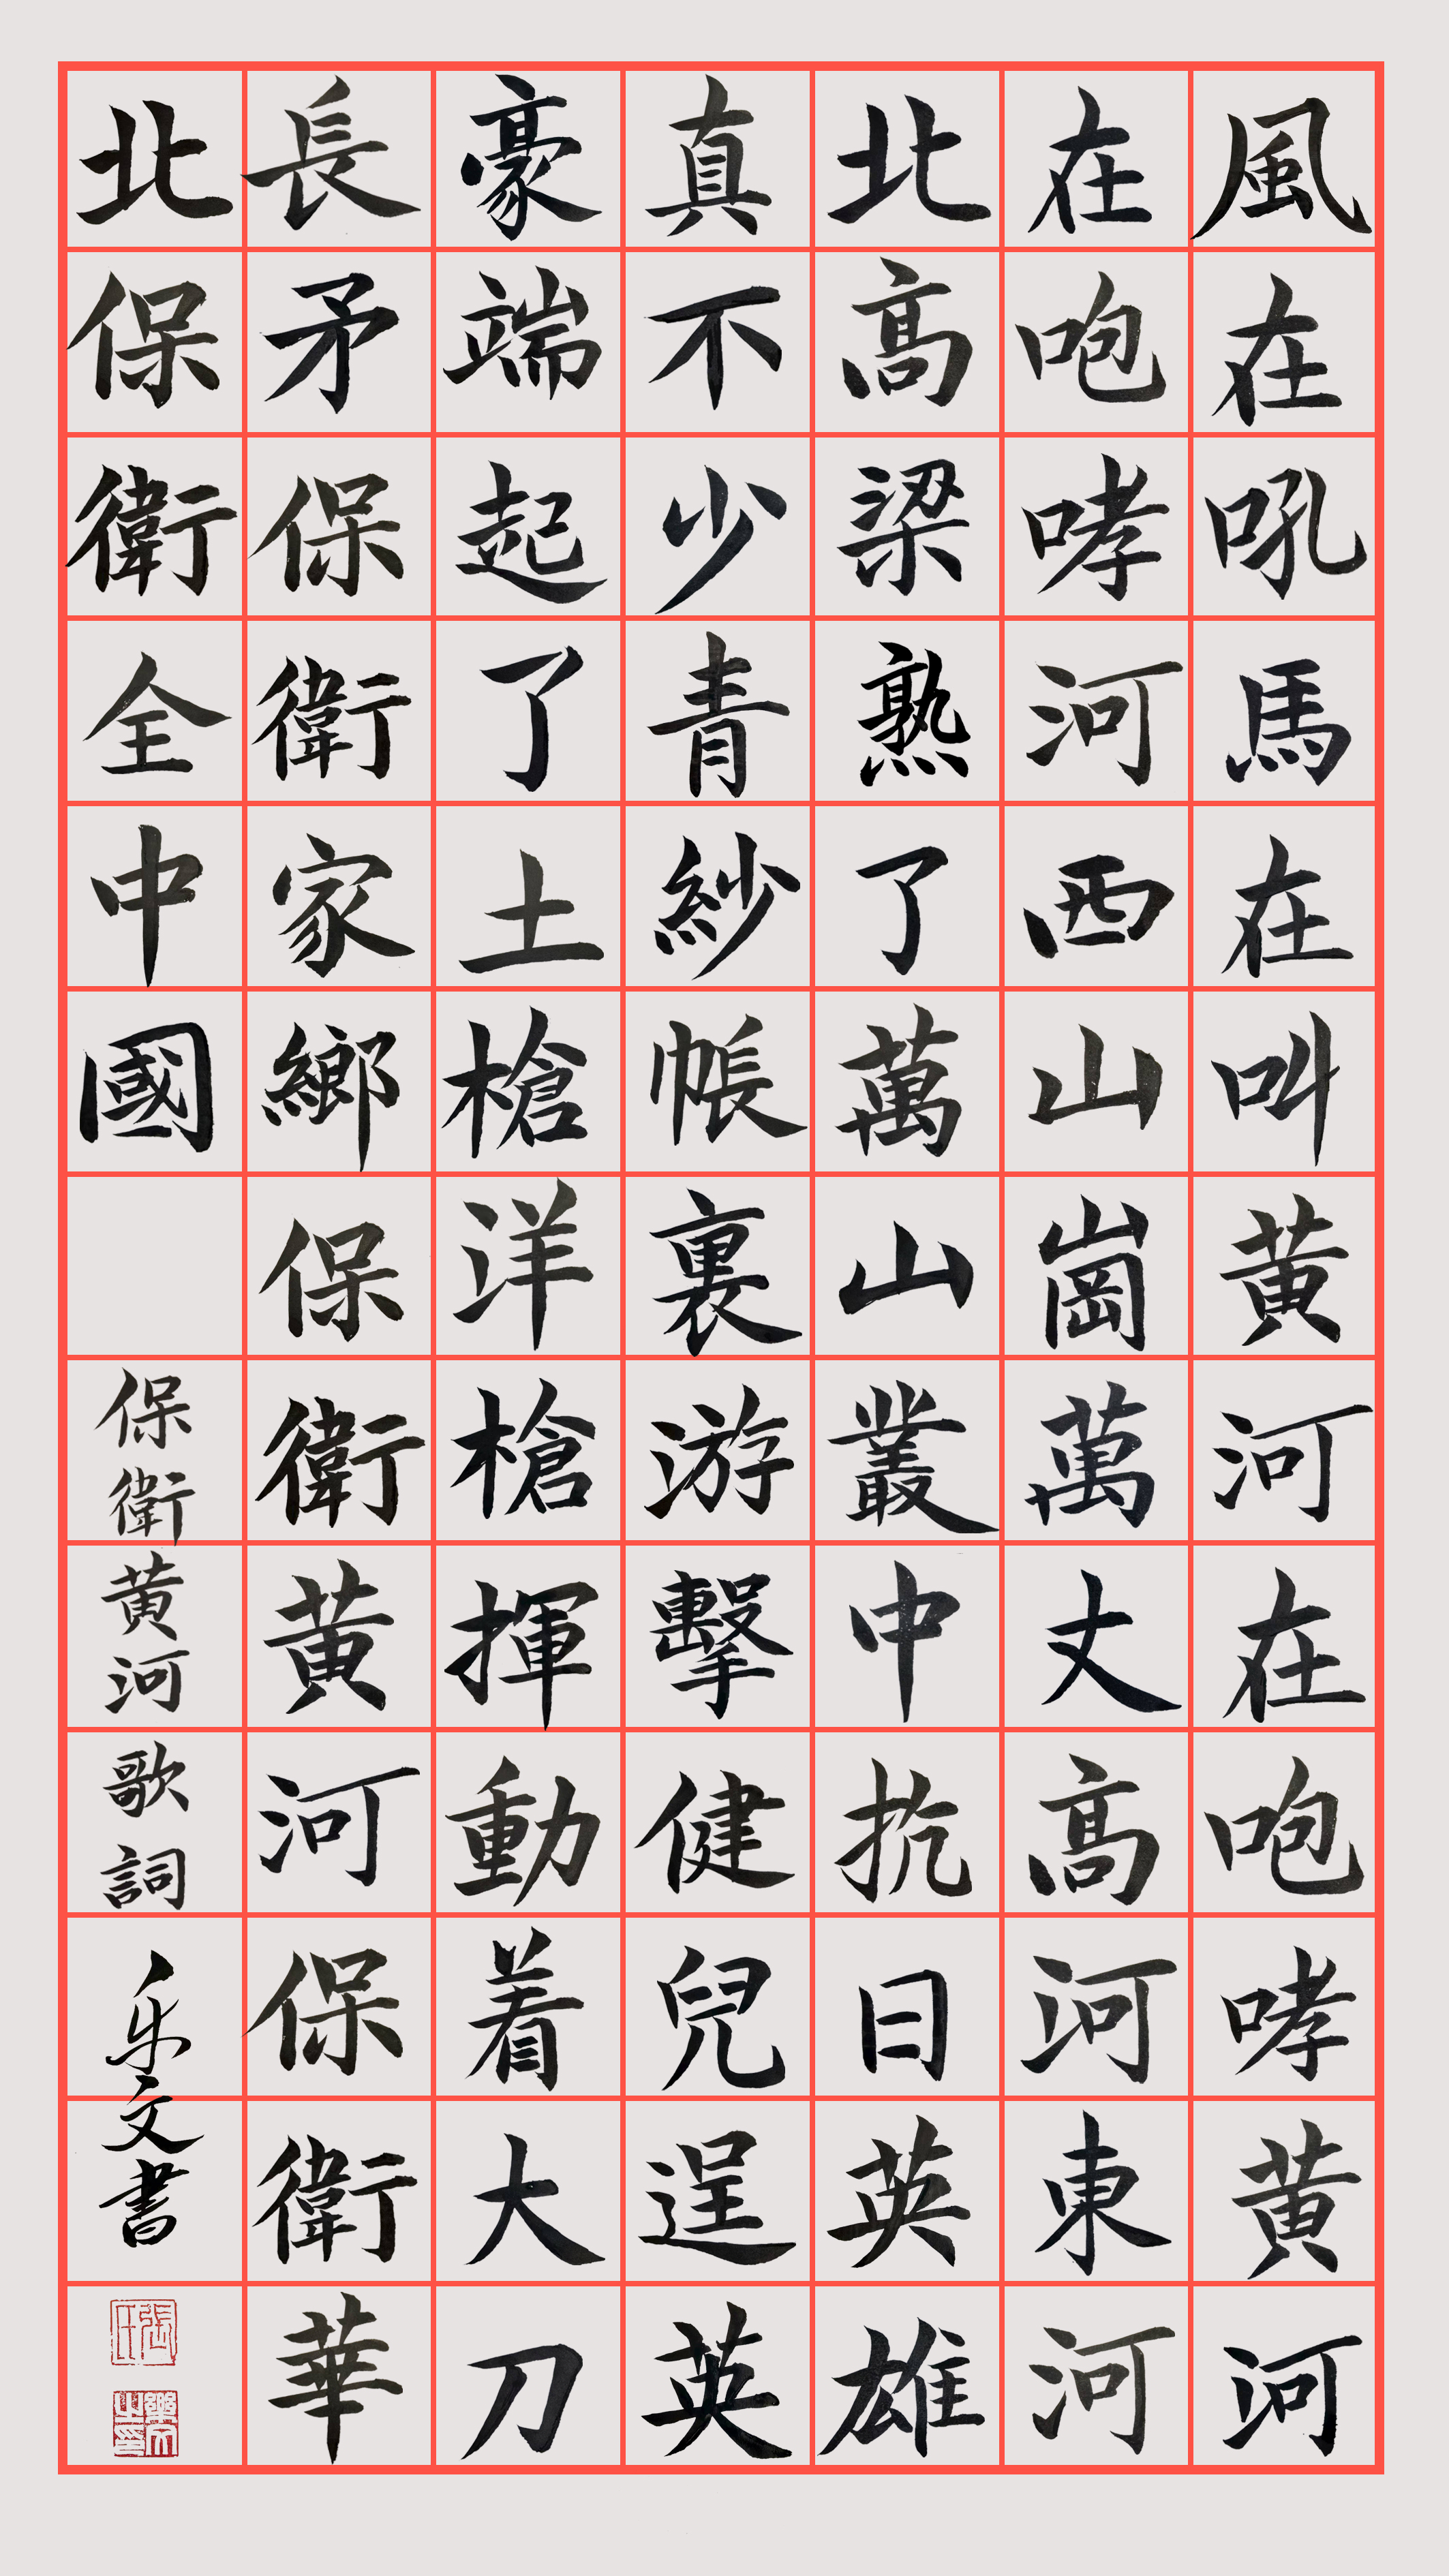 風在吼馬在叫黄河在咆哮黄河
在咆哮河西山崗萬丈高河東河
北高梁熟了萬山叢中抗日英雄
真不少青紗帳裏游擊健兒逞英
豪端起了土槍洋槍揮動着大刀
長矛保衛家鄉保衛黄河保衛華
北保衛全中國
保衛黄河歌詞
乐文書
張氏
樂文之印